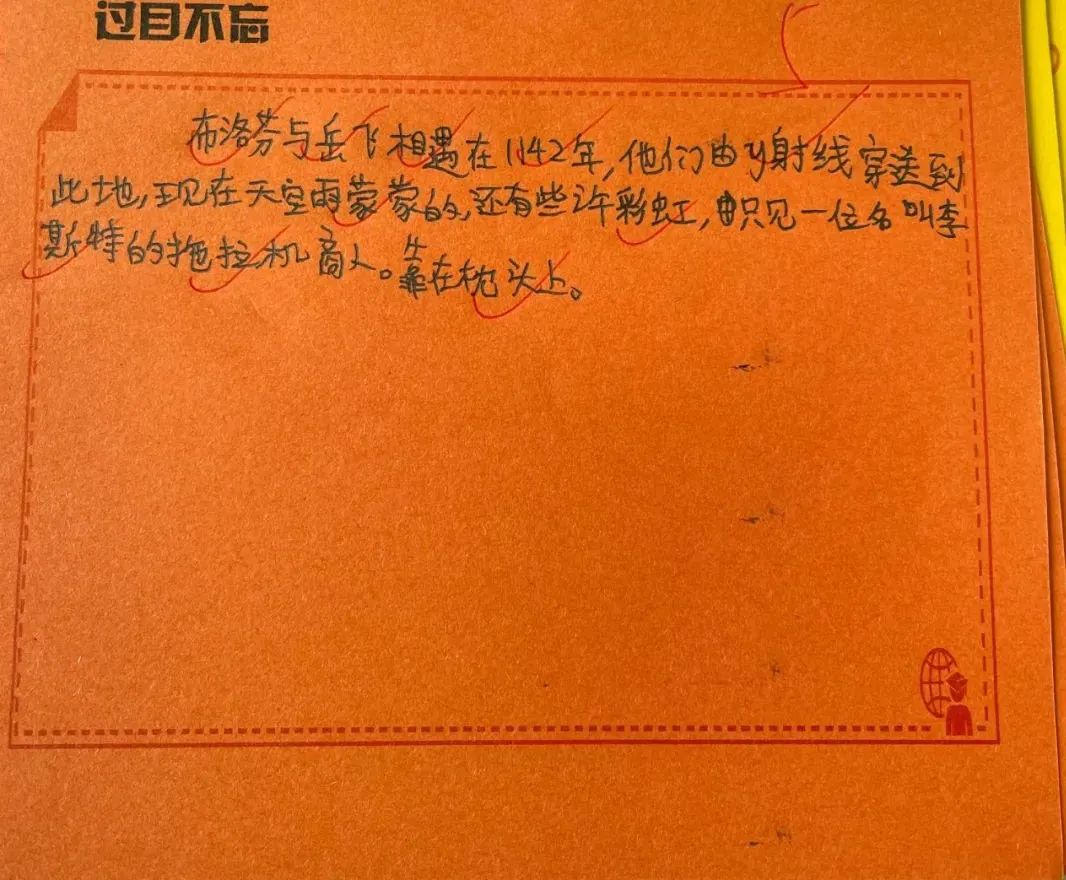 过目不忘
布洛芬与岳飞相遇在1142年,他们由y射线穿送到
此地,现在天空雨蒙蒙的,还有些许彩虹,只见一位名叫李
斯特的拖拉机商人。靠在枕头上。